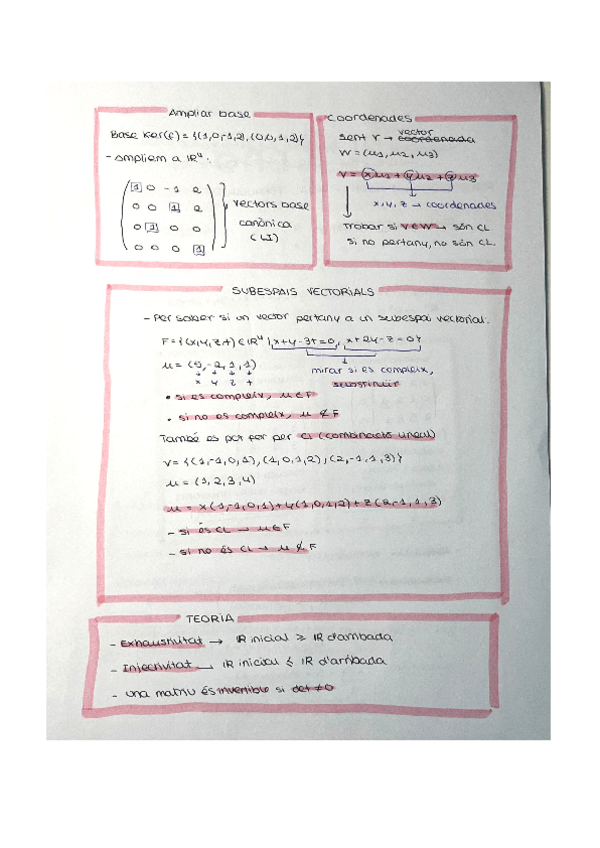 Ampliar base
Base Ker(f) = {(1,0,-1,2), (0,0,1,2)}
- Ampliem a IR⁴:
1 0 -1 2
0 0 1 2
0 1 0 0
0 0 0 1
vectors base
canònica
(LI)
Coordenades
Sent v → coordenada vector
W = (u1, u2, u3)
v = x u1 + y u2 + z u3
x, y, z → coordenades
Trobar si v ∈ W → són CL
si no pertany, no són CL.
SUBESPAIS VECTORIALS
- Per saber si un vector pertany a un subespai vectorial:
F = {(x,y,z,t) ∈ IR⁴ | x+y-3t=0, x+2y-z=0}
u = (5,-2,1,1)
x y z t
mirar si es compleix,
substituir
• si es compleix, u ∈ F
• si no es compleix, u ∉ F
També es pot fer per CL (combinació lineal)
V = {(1,-1,0,1), (1,0,1,2), (2,-1,1,3)}
u = (1,2,3,4)
u = x(1,-1,0,1) + y(1,0,1,2) + z(2,-1,1,3)
- si és CL → u ∈ F
- si no és CL → u ∉ F
TEORIA
- Exhaustivitat → IR inicial ≥ IR d'arribada
- Injectivitat → IR inicial ≤ IR d'arribada
- una matriu és invertible si det ≠ 0